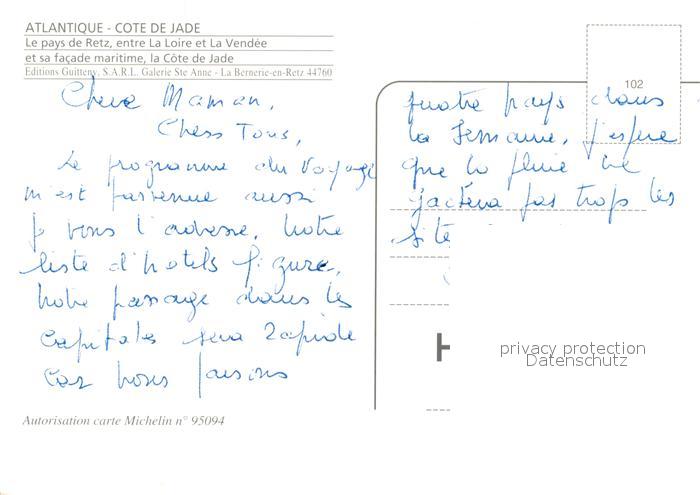 ATLANTIQUE - COTE DE JADE
Le pays de Retz, entre La Loire et La Vendée
et sa façade maritime, la Côte de Jade
Editions Guitteny, S.A.R.L. Galerie Ste Anne - La Bernerie-en-Retz 44760
Chere Maman,
Chers Tous,
Le programme du Voyage
m'est parvenue aussi
je vous l'adresse. Notre
liste d'hotels figure,
Notre passage dans les
Capitales sera rapide
car nous faisons
102
quatre pays dans
la Semaine. J'espere
que la pluie ne
gachera pas trop les
site
H
privacy protection
Datenschutz
Autorisation carte Michelin n° 95094